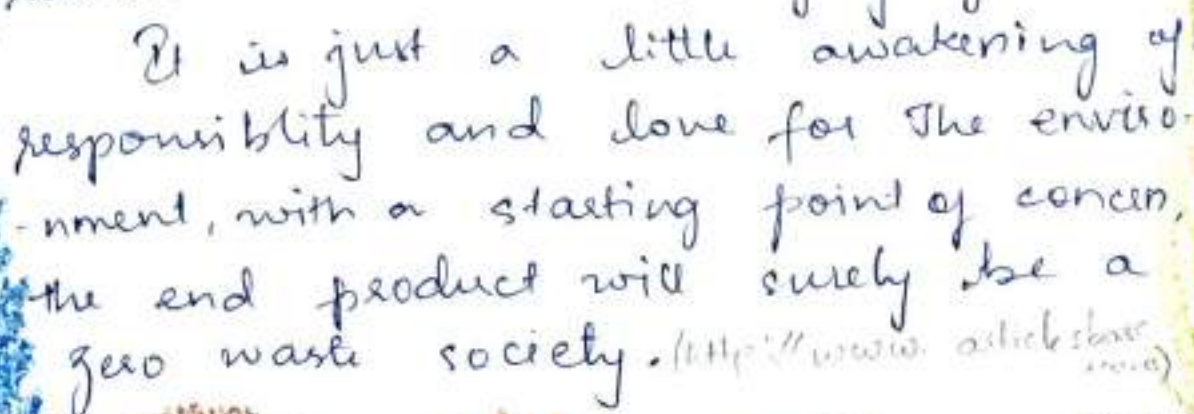 It is just a little awakening of
responsiblity and love for The enviro-
-nment, with a starting point of concen,
the end product will surely be a
zero waste society. (http://www.